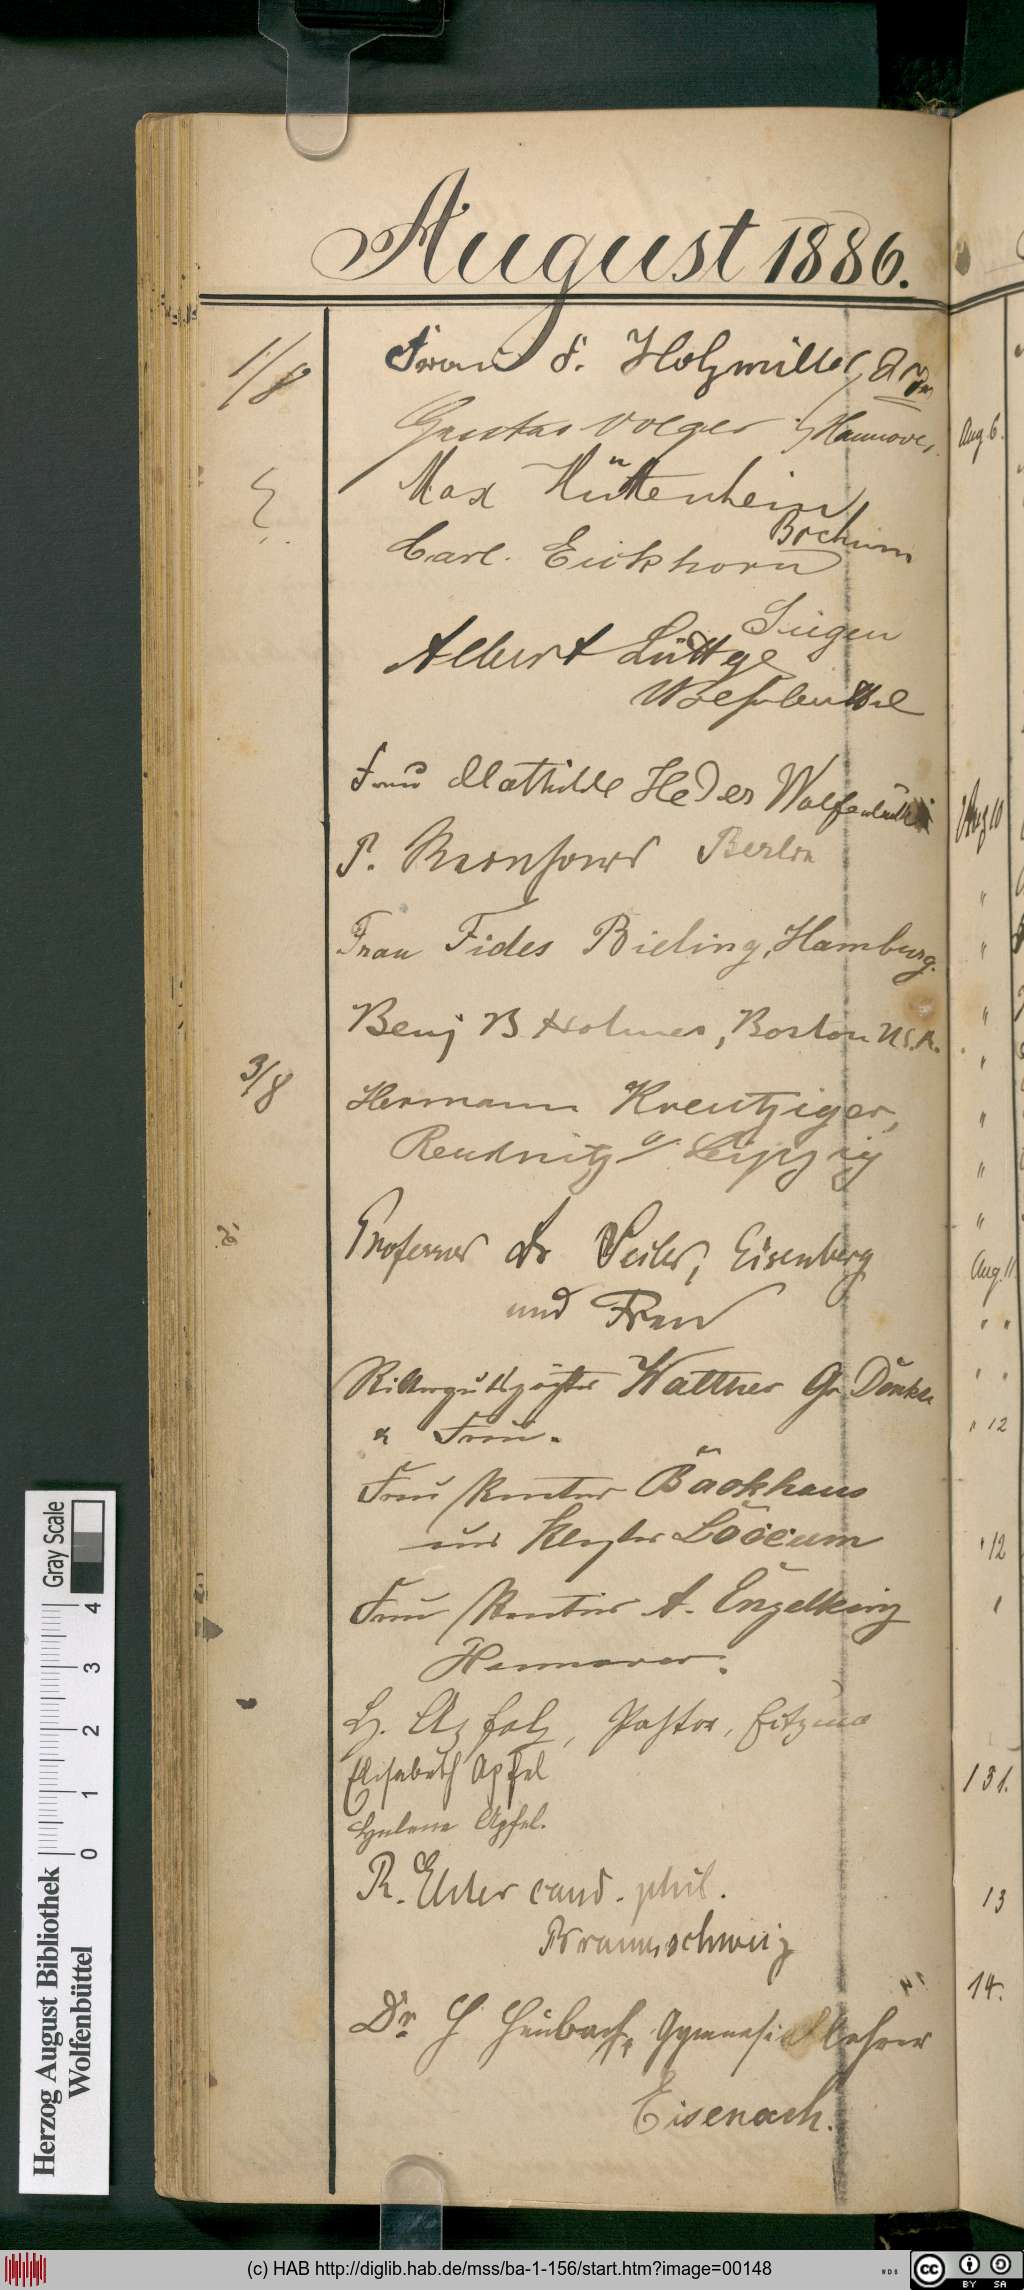 August 1886.
1/8
Frau F. Holzmüller,
Gustav Volger, Hannover.
Max Hüttenhein
Bochum
Carl Eickhorn
Siegen
Albert Lüttge
Wolfenbüttel
Frau Mathilde Wolfenbüttel
P. Berlin
Frau Fides Bieling, Hamburg.
Benj B Holmes, Boston U.S.A.
3/8
Hermann Kreutziger,
Reudnitz a/ Leipzig
Professor Dr Seiler, Eisenberg
und Frau
Rittergutspächter Wattner Gr. Denkte
u Frau.
Frau Rentier Backhaus
aus Kloster Loccum
Frau Rentier A. Engelking
Hannover.
H. Apfel, Pastor,
Elisabeth Apfel
Helene Apfel.
R. Elster cand. phil.
Braunschweig
Dr H Heubach, Gymnasiallehrer
Eisenach.
Aug 6.
Aug 10
Aug. 11
12
12
13
14.
Herzog August Bibliothek
Wolfenbüttel
0 1 2 3 4
Gray Scale
(c) HAB http://diglib.hab.de/mss/ba-1-156/start.htm?image=00148
cc BY SA